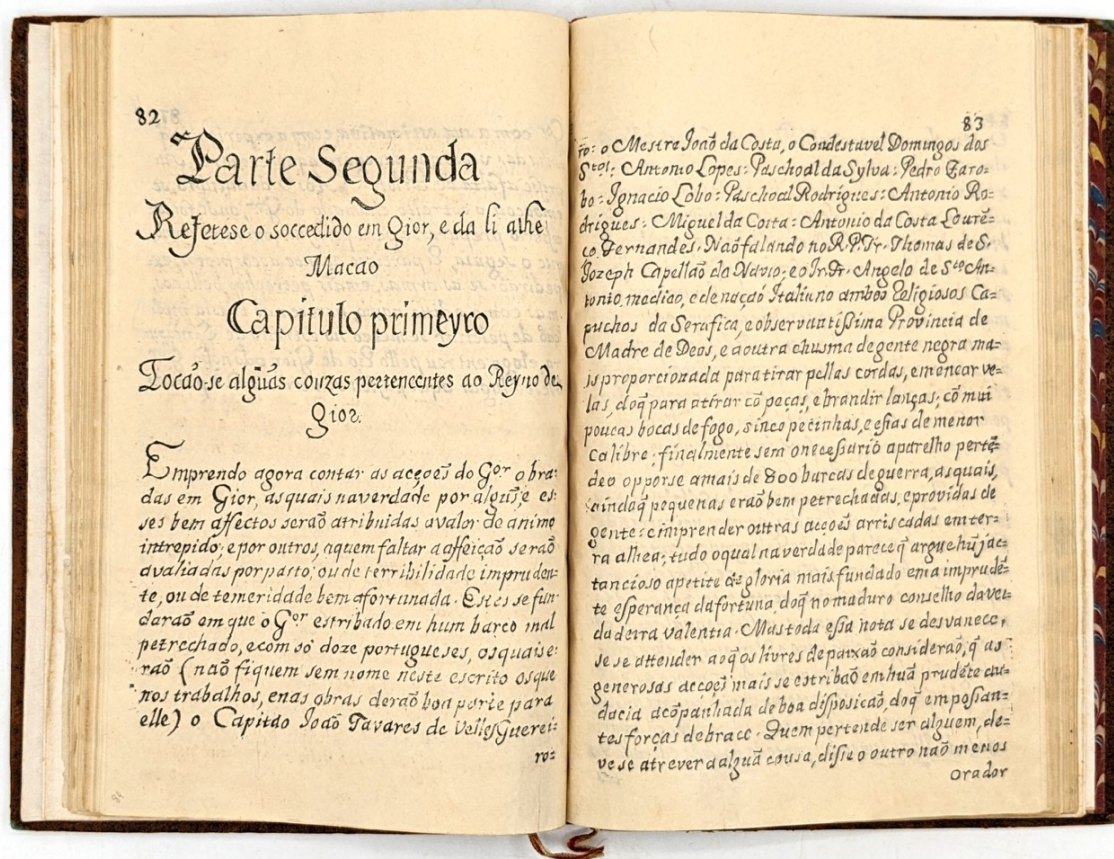 82
Parte Segunda
Refetese o soccedido em Gior, e da li athe
Macao
Capitulo primeyro
Tocão-se algũas couzas pertencentes ao Reyno de
Gior.
Emprendo agora contar as acçoẽs do Gor obra-
das em Gior, as quais na verdade por algũs, e es-
ses bem affectos seraõ atribuidas a valor de animo
intrepido; e por outros, a quem faltar a affeição seraõ
avaliadas por pasto, ou de terribilidade impruden-
te, ou de temeridade bem afortunada. Estes se fun-
daraõ em que o Gor estribado em hum barco mal
petrechado, e com só doze portugueses, os quais e-
raõ (naõ fiquem sem nome neste escrito os que
nos trabalhos, e nas obras deraõ boa parte para
elle) o Capitão Joaõ Tavares de Velles Guerei-
ro=
83
ro: o Mestre Joaõ da Costa, o Condestavel Domingos dos
Stos: Antonio Lopes: Paschoal da Sylva: Pedro Zaro-
bo: Ignacio Lobo: Paschoal Rodrigues: Antonio Ro-
drigues: Miguel da Costa: Antonio da Costa Lourẽ-
ço Fernandes. Naõ falando no R. P. Fr. Thomas de S.
Jozeph Capellaõ da Navio; e o Ir. Fr. Angelo de Sto An-
tonio, medico, e de naçaõ Italiano ambos Religiosos Ca=
puchos da Serafica, e observantissima Provincia de
Madre de Deos, e a outra chusma de gente negra ma-
is proporcionada para tirar pellas cordas, em encar ve-
las, do q̃ para atirar cõ peças, e brandir lanças; cõ mui
poucas bocas de fogo, sinco pecinhas, e essas de menor
calibre; finalmente sem o necessario aparelho pertẽ-
deo opporse a mais de 800 barcas de guerra, as quais,
ainda q̃ pequenas eraõ bem petrechadas, e providas de
gente: emprender outras acçoẽs arriscadas em ter-
ra alhea; tudo o qual na verdade parece q̃ argue hũ jac-
tancioso apetite de gloria mais fundado em a imprudẽ-
te esperança da fortuna, do q̃ no maduro conselho da ver-
dadeira valentia. Mas toda essa nota se desvanece,
se se attender ao q̃ os livres de paixaõ consideraõ, q̃ as
generosas acçoẽs mais se estribaõ em huã prudẽte au-
dacia acõpanhada de boa disposicaõ, do q̃ em possan-
tes forças de braco. Quem pertende ser alguem, de-
ve se atrever a alguã cousa, disse o outro naõ menos
orador